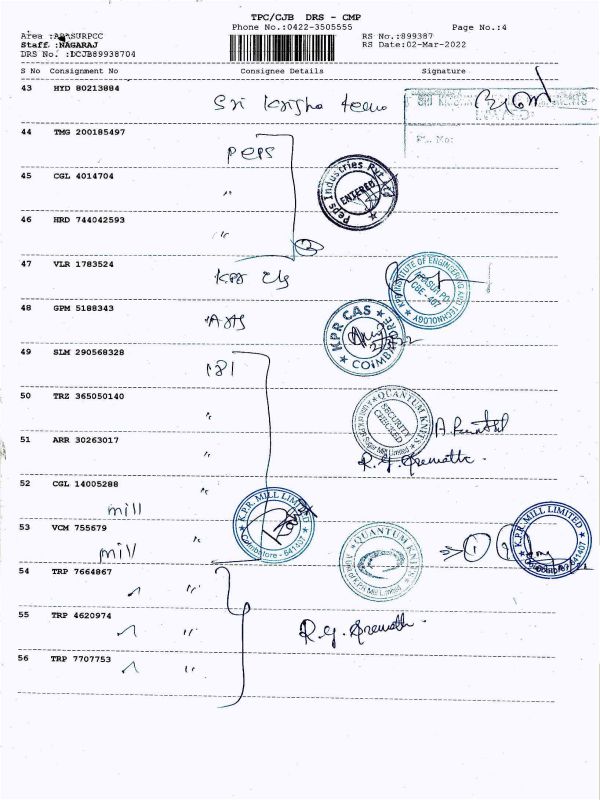 TPC/CJB DRS - CMP
Phone No.:0422-3505555
Page No.:4
Area :ARASURPCC
RS No.:899387
Staff :NAGARAJ
RS Date:02-Mar-2022
DRS No. :DCJB89938704
S No Consignment No Consignee Details Signature
43 HYD 80213884
Sri Krisha
44 TMG 200185497
peps
Peps Industries Pvt Ltd
ENTERED
45 CGL 4014704
"
46 HRD 744042593
"
2
47 VLR 1783524
KPR Clg
KPR INSTITUTE OF ENGINEERING AND TECHNOLOGY
ARASUR PO
CBE - 407
48 GPM 5188343
KPR CAS
COIMBATORE
49 SLM 290568328
50 TRZ 365050140
"
QUANTUM KNITS
SECURITY
CHECKED
51 ARR 30263017
"
R.G.
52 CGL 14005288
"
mill
K.P.R. MILL LIMITED
Coimbatore - 641407
K.P.R. MILL LIMITED
Coimbatore - 641407
53 VCM 755679
mill
QUANTUM KNITS
1
2
54 TRP 7664867
"
55 TRP 4620974
"
R.G.
56 TRP 7707753
"